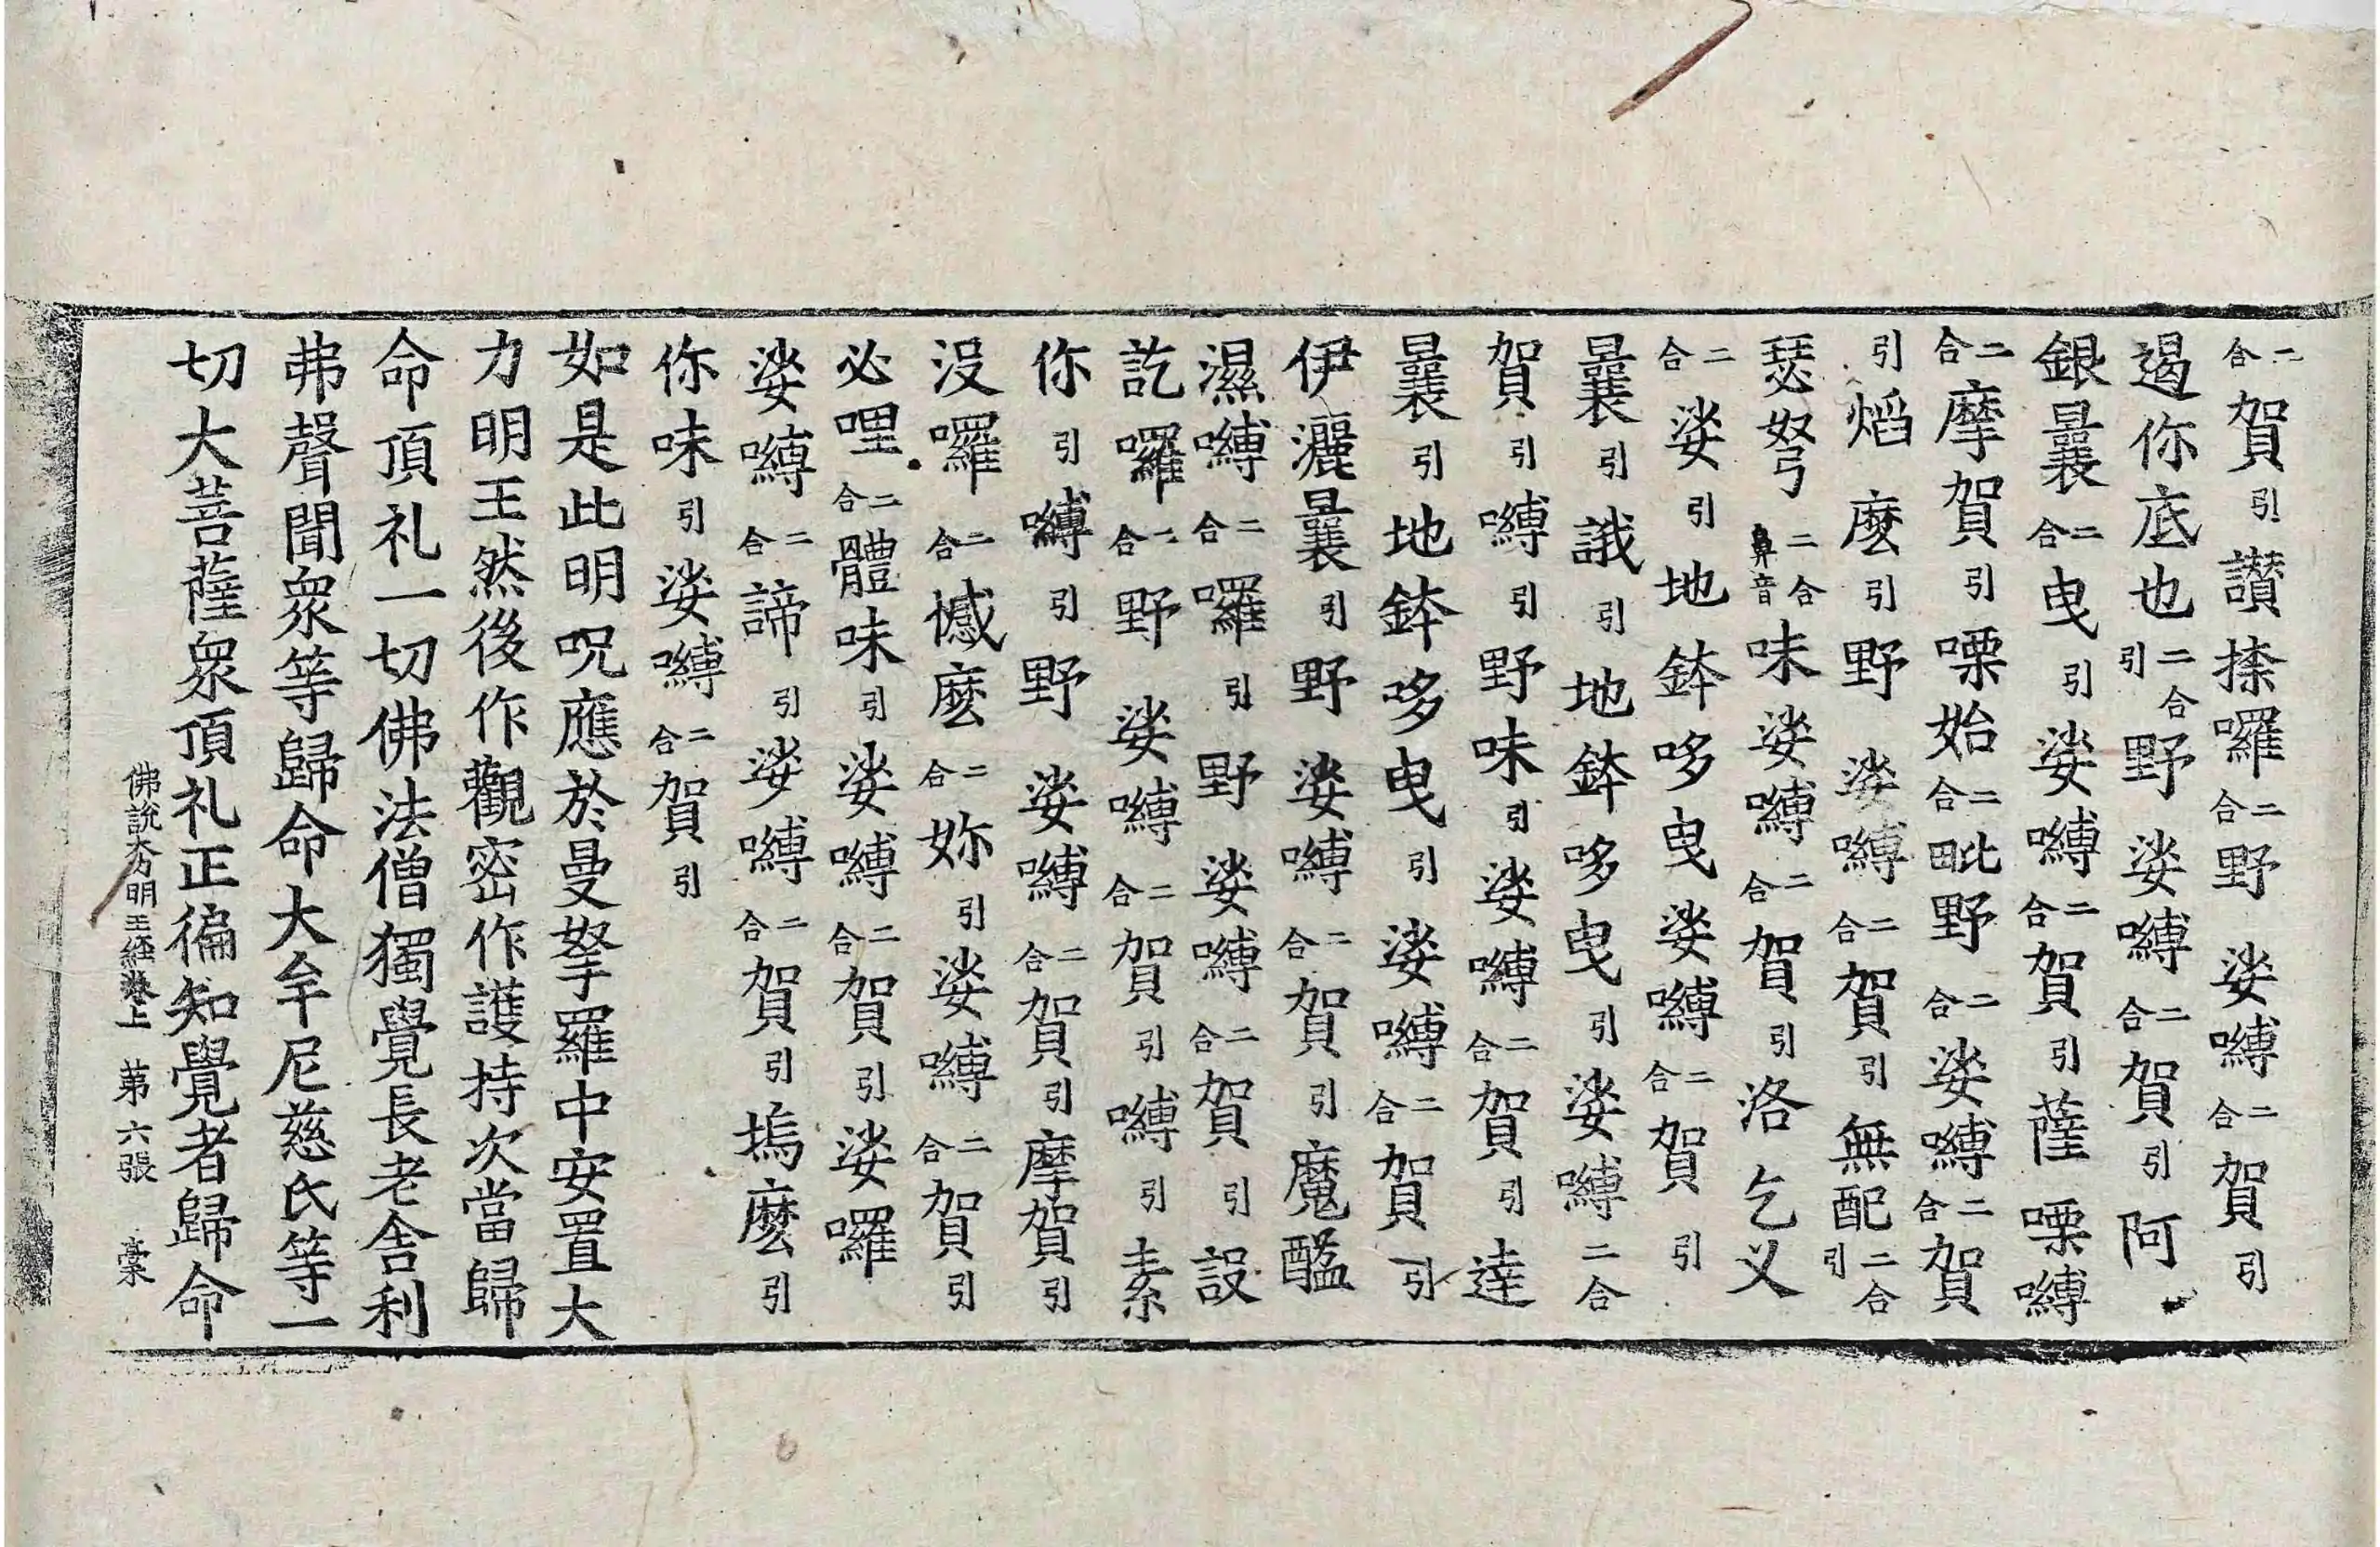 二合賀引讃捺囉二合野娑嚩二合賀引
遏你底也二合引野娑嚩二合賀引阿
銀曩二合曳引娑嚩二合賀引薩㗚嚩
二合摩賀引㗚始二合毗野二合娑嚩二合賀
引熖麽引野娑嚩二合賀引無配二合引
瑟弩二合鼻音味娑嚩二合賀引洛乞义
二合娑引地鉢哆曳娑嚩二合賀引
曩引誐引地鉢哆曳引娑嚩二合
賀引嚩引野味引娑嚩二合賀引達
曩引地鉢哆曳引娑嚩二合賀引
伊灑曩引野娑嚩二合賀引魔醯
濕嚩二合囉引野娑嚩二合賀引設
訖囉二合野娑嚩二合賀引嚩引素
你引嚩引野娑嚩二合賀引摩賀引
没囉二合憾麽二合妳引娑嚩二合賀引
必哩二合體味引娑嚩二合賀引娑囉
娑嚩二合諦引娑嚩二合賀引塢麽引
你味引娑嚩二合賀引
如是此明呪應於曼拏羅中安置大
力明王然後作觀密作護持次當歸
命頂礼一切佛法僧獨覺長老舍利
弗聲聞衆等歸命大牟尼慈氏等一
切大菩薩衆頂礼正徧知覺者歸命
佛說大力明王經卷上 第六張 槖